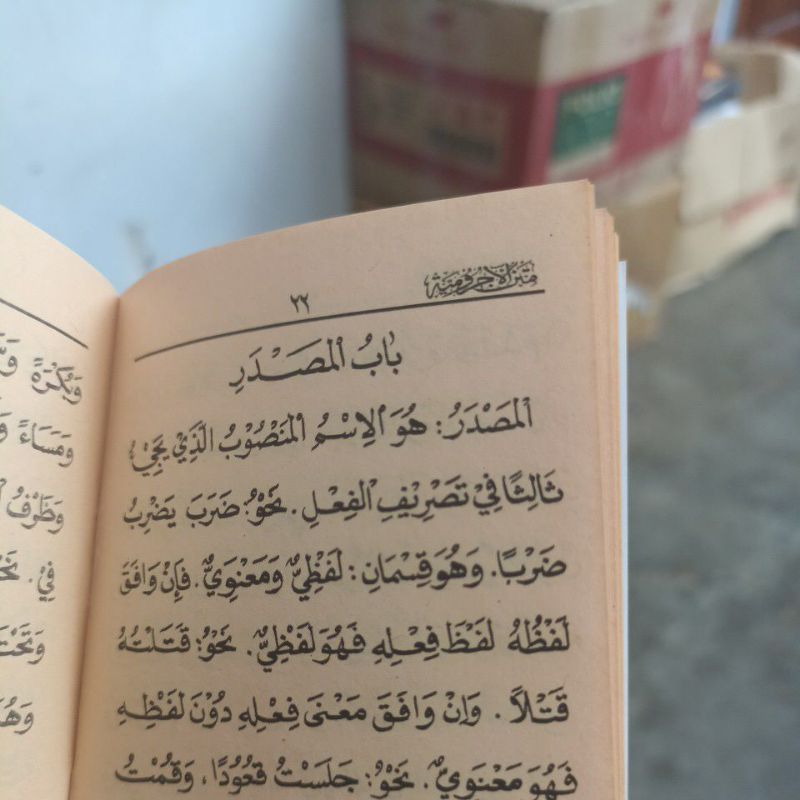 متن الأجرومية
٢٢
بَابُ الْمَصْدَرِ
اَلْمَصْدَرُ: هُوَ الْاِسْمُ الْمَنْصُوْبُ الَّذِيْ يَجِيْءُ
ثَالِثًا فِيْ تَصْرِيْفِ الْفِعْلِ. نَحْوُ: ضَرَبَ يَضْرِبُ
ضَرْبًا. وَهُوَ قِسْمَانِ: لَفْظِيٌّ وَمَعْنَوِيٌّ. فَإِنْ وَافَقَ
لَفْظُهُ لَفْظَ فِعْلِهِ فَهُوَ لَفْظِيٌّ. نَحْوُ: قَتَلْتُهُ
قَتْلًا. وَإِنْ وَافَقَ مَعْنَى فِعْلِهِ دُوْنَ لَفْظِهِ
فَهُوَ مَعْنَوِيٌّ. نَحْوُ: جَلَسْتُ قُعُوْدًا، وَقُمْتُ
وَبُكْرَةً
وَمَسَاءً
وَظَرْفُ
فِيْ.